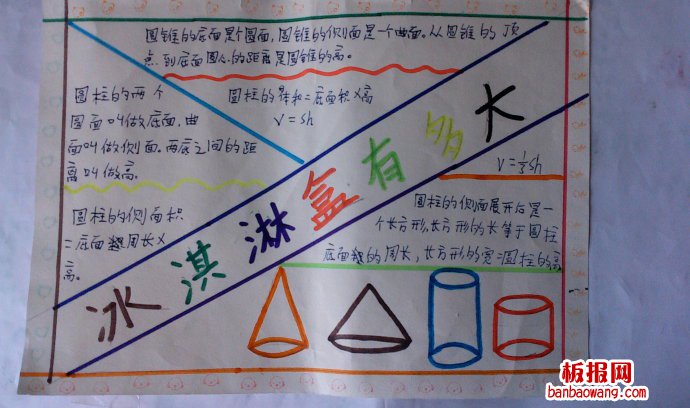 圆锥的底面是个圆面,圆锥的侧面是一个曲面。从圆锥的顶
点到底面圆心的距离是圆锥的高。
圆柱的两个
圆面叫做底面,曲
面叫做侧面。两底之间的距
离叫做高。
圆柱的体积=底面积×高
V=sh
冰淇淋盒有多大
V=⅓sh
圆柱的侧面积
=底面 周长×
高。
圆柱的侧面展开后是一
个长方形,长方形的长等于圆柱
底面 的周长,长方形的宽 圆柱的高
板报网
banbaowang.com